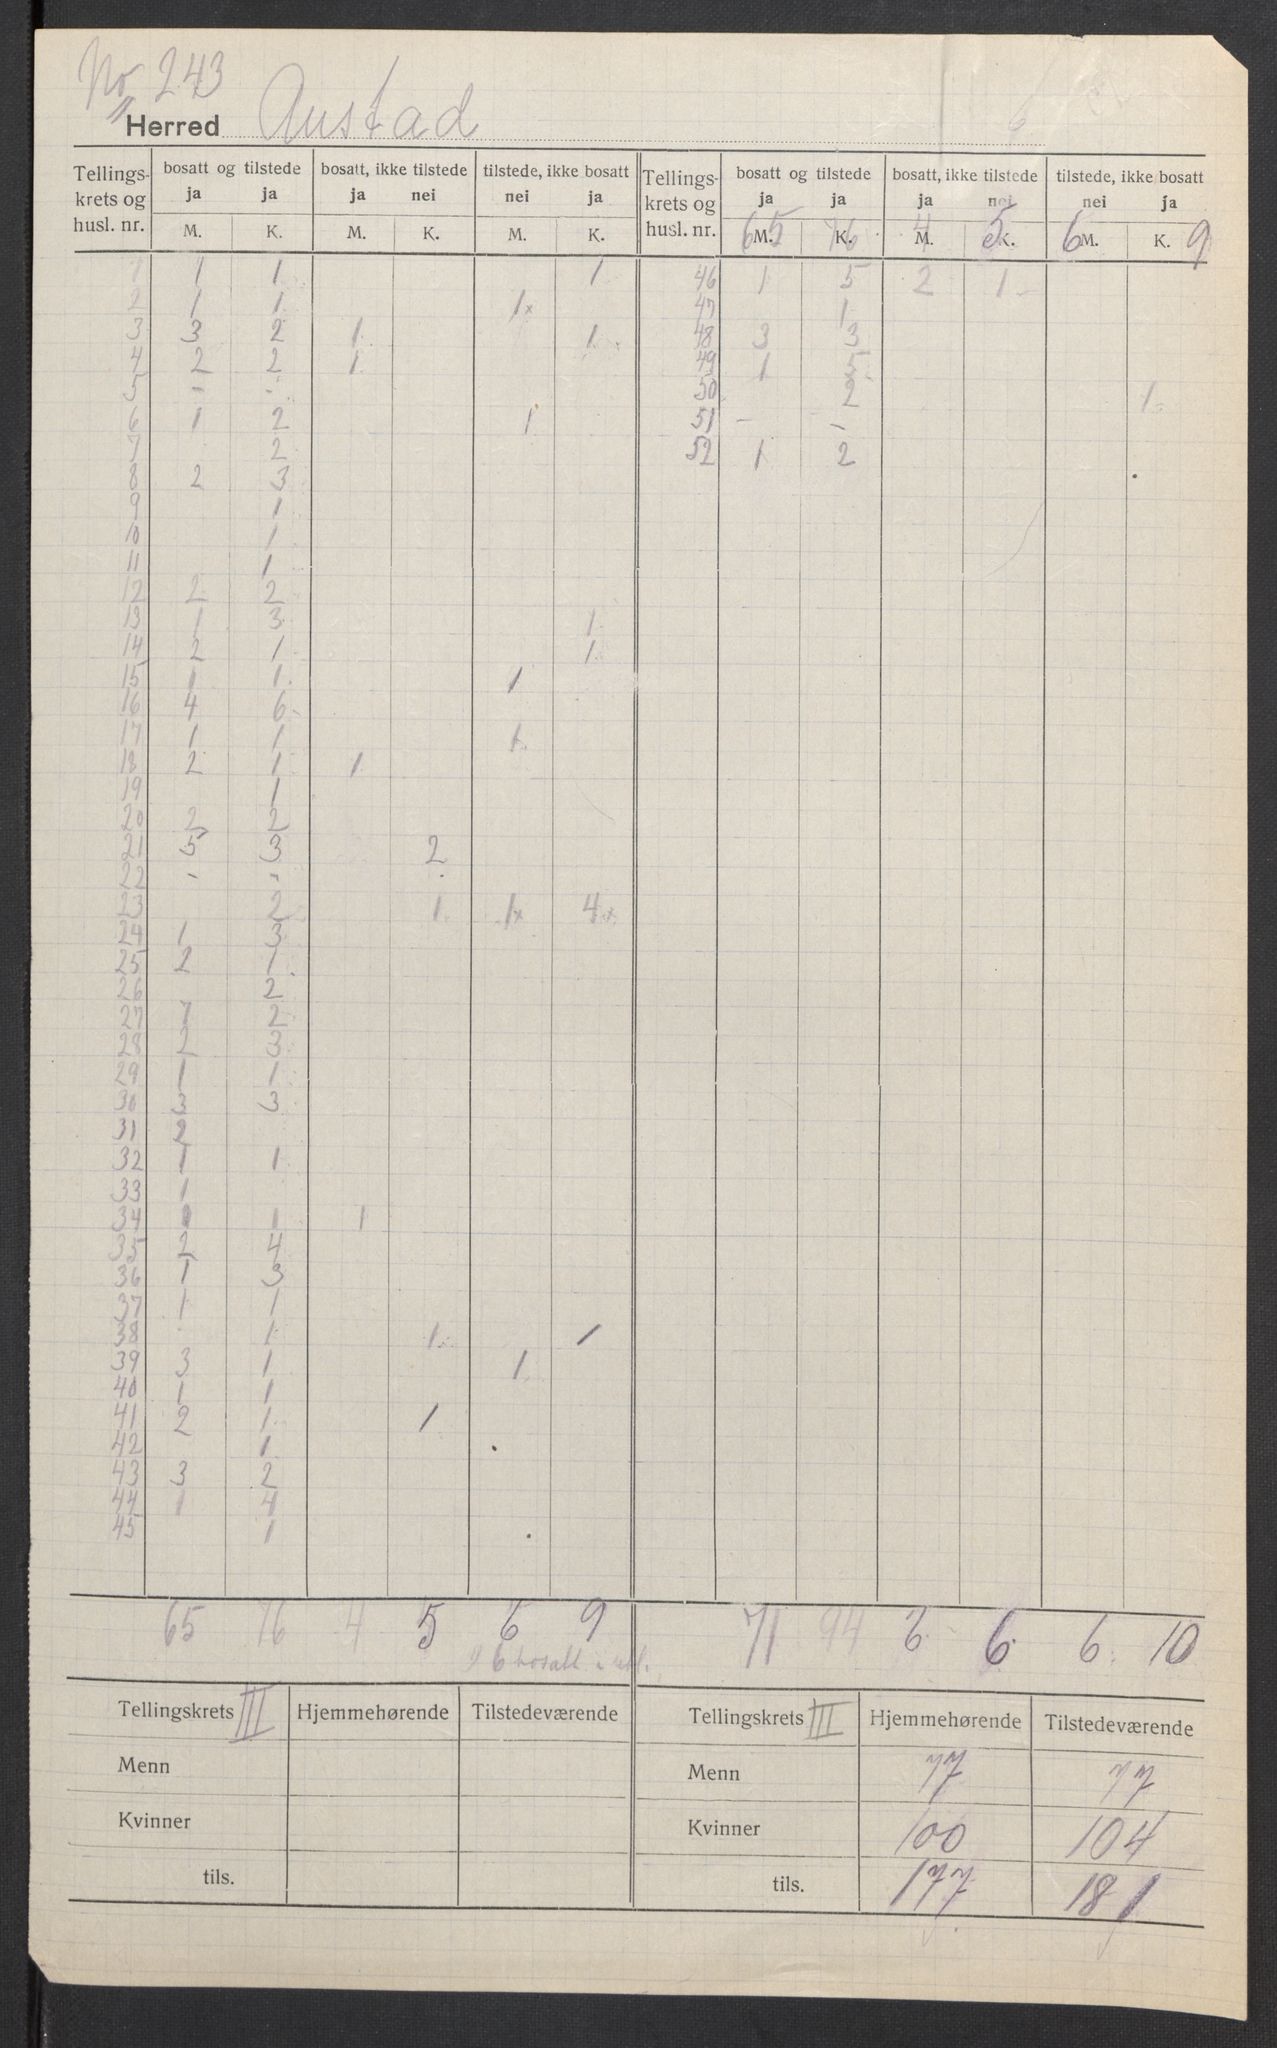 No 243
Herred Austad
Tellings- krets og husl. nr. | bosatt og tilstede ja ja M. K. | bosatt, ikke tilstede ja nei M. K. | tilstede, ikke bosatt nei ja M. K. | Tellings- krets og husl. nr. | bosatt og tilstede ja ja M. K. | bosatt, ikke tilstede ja nei M. K. | tilstede, ikke bosatt nei ja M. K.
65 76 4 5 6 9
1 | 1 | 1 | | | | 1
2 | 1 | 1 | | | 1x |
3 | 3 | 2 | 1 | | | 1
4 | 2 | 2 | 1 | | |
5 | - | - | | | |
6 | 1 | 2 | | | 1 |
7 | | 2 | | | |
8 | 2 | 3 | | | |
9 | | 1 | | | |
10 | | 1 | | | |
11 | | 1 | | | |
12 | 2 | 2 | | | |
13 | 1 | 3 | | | | 1
14 | 2 | 1 | | | | 1
15 | 1 | 1 | | | 1 |
16 | 4 | 6 | | | |
17 | 1 | 1 | | | 1 |
18 | 2 | 1 | 1 | | |
19 | | 1 | | | |
20 | 2 | 2 | | | |
21 | 5 | 3 | | 2 | |
22 | - | - | | | |
23 | | 2 | | 1 | 1x | 4x
24 | 1 | 3 | | | |
25 | 2 | 1 | | | |
26 | | 2 | | | |
27 | 1 | 2 | | | |
28 | 2 | 3 | | | |
29 | 1 | 1 | | | |
30 | 3 | 3 | | | |
31 | 2 | | | | |
32 | 1 | 1 | | | |
33 | 1 | | | | |
34 | | 1 | 1 | | |
35 | 2 | 4 | | | |
36 | 1 | 3 | | | |
37 | 1 | 1 | | | |
38 | | 1 | | 1 | | 1
39 | 3 | 1 | | | 1 |
40 | 1 | 1 | | | |
41 | 2 | 1 | | 1 | |
42 | | 1 | | | |
43 | 3 | 2 | | | |
44 | 1 | 4 | | | |
45 | | 1 | | | |
65 76 4 5 6 9
6 bosatt
46 | 1 | 5 | 2 | 1 | |
47 | | 1 | | | |
48 | 3 | 3 | | | |
49 | 1 | 5 | | | |
50 | | 2 | | | | 1
51 | - | - | | | |
52 | 1 | 2 | | | |
71 94 6 6 6 10
Tellingskrets III | Hjemmehørende | Tilstedeværende
Menn
Kvinner
tils.
Tellingskrets III | Hjemmehørende | Tilstedeværende
Menn | 77 | 77
Kvinner | 100 | 104
tils. | 177 | 181